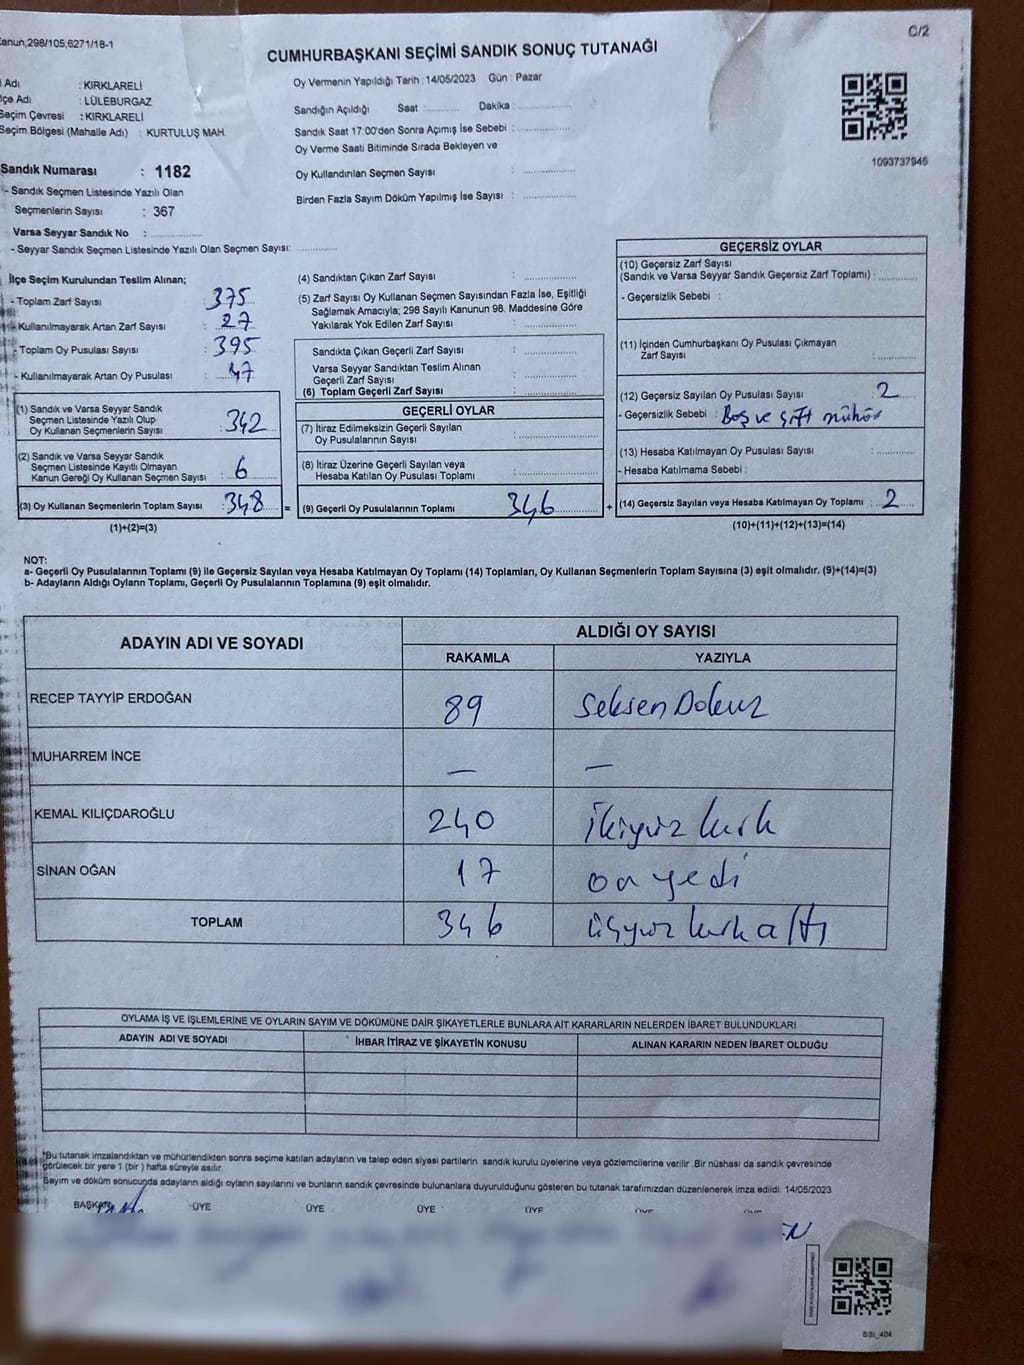 Kanun,298/105,6271/18-1
C/2
CUMHURBAŞKANI SEÇİMİ SANDIK SONUÇ TUTANAĞI
Adı : KIRKLARELİ
İlçe Adı : LÜLEBURGAZ
Seçim Çevresi : KIRKLARELİ
Seçim Bölgesi (Mahalle Adı) : KURTULUŞ MAH.
Oy Vermenin Yapıldığı Tarih : 14/05/2023 Gün : Pazar
Sandığın Açıldığı Saat :.......... Dakika :..........
Sandık Saat 17:00'den Sonra Açımış İse Sebebi :..........
Oy Verme Saati Bitiminde Sırada Bekleyen ve
Oy Kullandırılan Seçmen Sayısı :..........
Birden Fazla Sayım Döküm Yapılmış İse Sayısı :..........
1093737945
Sandık Numarası : 1182
- Sandık Seçmen Listesinde Yazılı Olan
Seçmenlerin Sayısı : 367
Varsa Seyyar Sandık No :..........
- Seyyar Sandık Seçmen Listesinde Yazılı Olan Seçmen Sayısı: ..........
İlçe Seçim Kurulundan Teslim Alınan;
- Toplam Zarf Sayısı : 375
- Kullanılmayarak Artan Zarf Sayısı : 27
- Toplam Oy Pusulası Sayısı : 395
- Kullanılmayarak Artan Oy Pusulası : 47
(1) Sandık ve Varsa Seyyar Sandık
Seçmen Listesinde Yazılı Olup
Oy Kullanan Seçmenlerin Sayısı : 342
(2) Sandık ve Varsa Seyyar Sandık
Seçmen Listesinde Kayıtlı Olmayan
Kanun Gereği Oy Kullanan Seçmen Sayısı : 6
(3) Oy Kullanan Seçmenlerin Toplam Sayısı : 348 =
(1)+(2)=(3)
(4) Sandıktan Çıkan Zarf Sayısı :..........
(5) Zarf Sayısı Oy Kullanan Seçmen Sayısından Fazla İse, Eşitliği
Sağlamak Amacıyla; 298 Sayılı Kanunun 98. Maddesine Göre
Yakılarak Yok Edilen Zarf Sayısı :..........
Sandıkta Çıkan Geçerli Zarf Sayısı :..........
Varsa Seyyar Sandıktan Teslim Alınan
Geçerli Zarf Sayısı :..........
(6) Toplam Geçerli Zarf Sayısı :..........
GEÇERLİ OYLAR
(7) İtiraz Edilmeksizin Geçerli Sayılan
Oy Pusulalarının Sayısı :..........
(8) İtiraz Üzerine Geçerli Sayılan veya
Hesaba Katılan Oy Pusulaları Toplamı :..........
(9) Geçerli Oy Pusulalarının Toplamı 346 +
GEÇERSİZ OYLAR
(10) Geçersiz Zarf Sayısı
(Sandık ve Varsa Seyyar Sandık Geçersiz Zarf Toplamı) :..........
- Geçersizlik Sebebi :
(11) İçinden Cumhurbaşkanı Oy Pusulası Çıkmayan
Zarf Sayısı :..........
(12) Geçersiz Sayılan Oy Pusulası Sayısı : 2
- Geçersizlik Sebebi : Boş ve çift mühür
(13) Hesaba Katılmayan Oy Pusulası Sayısı :..........
- Hesaba Katılmama Sebebi :
(14) Geçersiz Sayılan veya Hesaba Katılmayan Oy Toplamı : 2
(10)+(11)+(12)+(13)=(14)
NOT:
a- Geçerli Oy Pusulalarının Toplamı (9) ile Geçersiz Sayılan veya Hesaba Katılmayan Oy Toplamı (14) Toplamları, Oy Kullanan Seçmenlerin Toplam Sayısına (3) eşit olmalıdır. (9)+(14)=(3)
b- Adayların Aldığı Oyların Toplamı, Geçerli Oy Pusulalarının Toplamına (9) eşit olmalıdır.
ADAYIN ADI VE SOYADI
ALDIĞI OY SAYISI
RAKAMLA YAZIYLA
RECEP TAYYİP ERDOĞAN 89 Seksen Dokuz
MUHARREM İNCE — —
KEMAL KILIÇDAROĞLU 240 İkiyüz kırk
SİNAN OĞAN 17 on yedi
TOPLAM 346 üçyüz kırk altı
OYLAMA İŞ VE İŞLEMLERİNE VE OYLARIN SAYIM VE DÖKÜMÜNE DAİR ŞİKAYETLERLE BUNLARA AİT KARARLARIN NELERDEN İBARET BULUNDUKLARI
ADAYIN ADI VE SOYADI İHBAR İTİRAZ VE ŞİKAYETİN KONUSU ALINAN KARARIN NEDEN İBARET OLDUĞU
*Bu tutanak imzalandıktan ve mühürlendikten sonra seçime katılan adayların ve talep eden siyasi partilerin sandık kurulu üyelerine veya gözlemcilerine verilir .Bir nüshası da sandık çevresinde
görülecek bir yere 1 (bir ) hafta süreyle asılır.
Sayım ve döküm sonucunda adayların aldığı oyların sayılarını ve bunların sandık çevresinde bulunanlara duyurulduğunu gösteren bu tutanak tarafımızdan düzenlenerek imza edildi. 14/05/2023
BAŞKAN ÜYE ÜYE ÜYE ÜYE ÜYE ÜYE
BBI_404